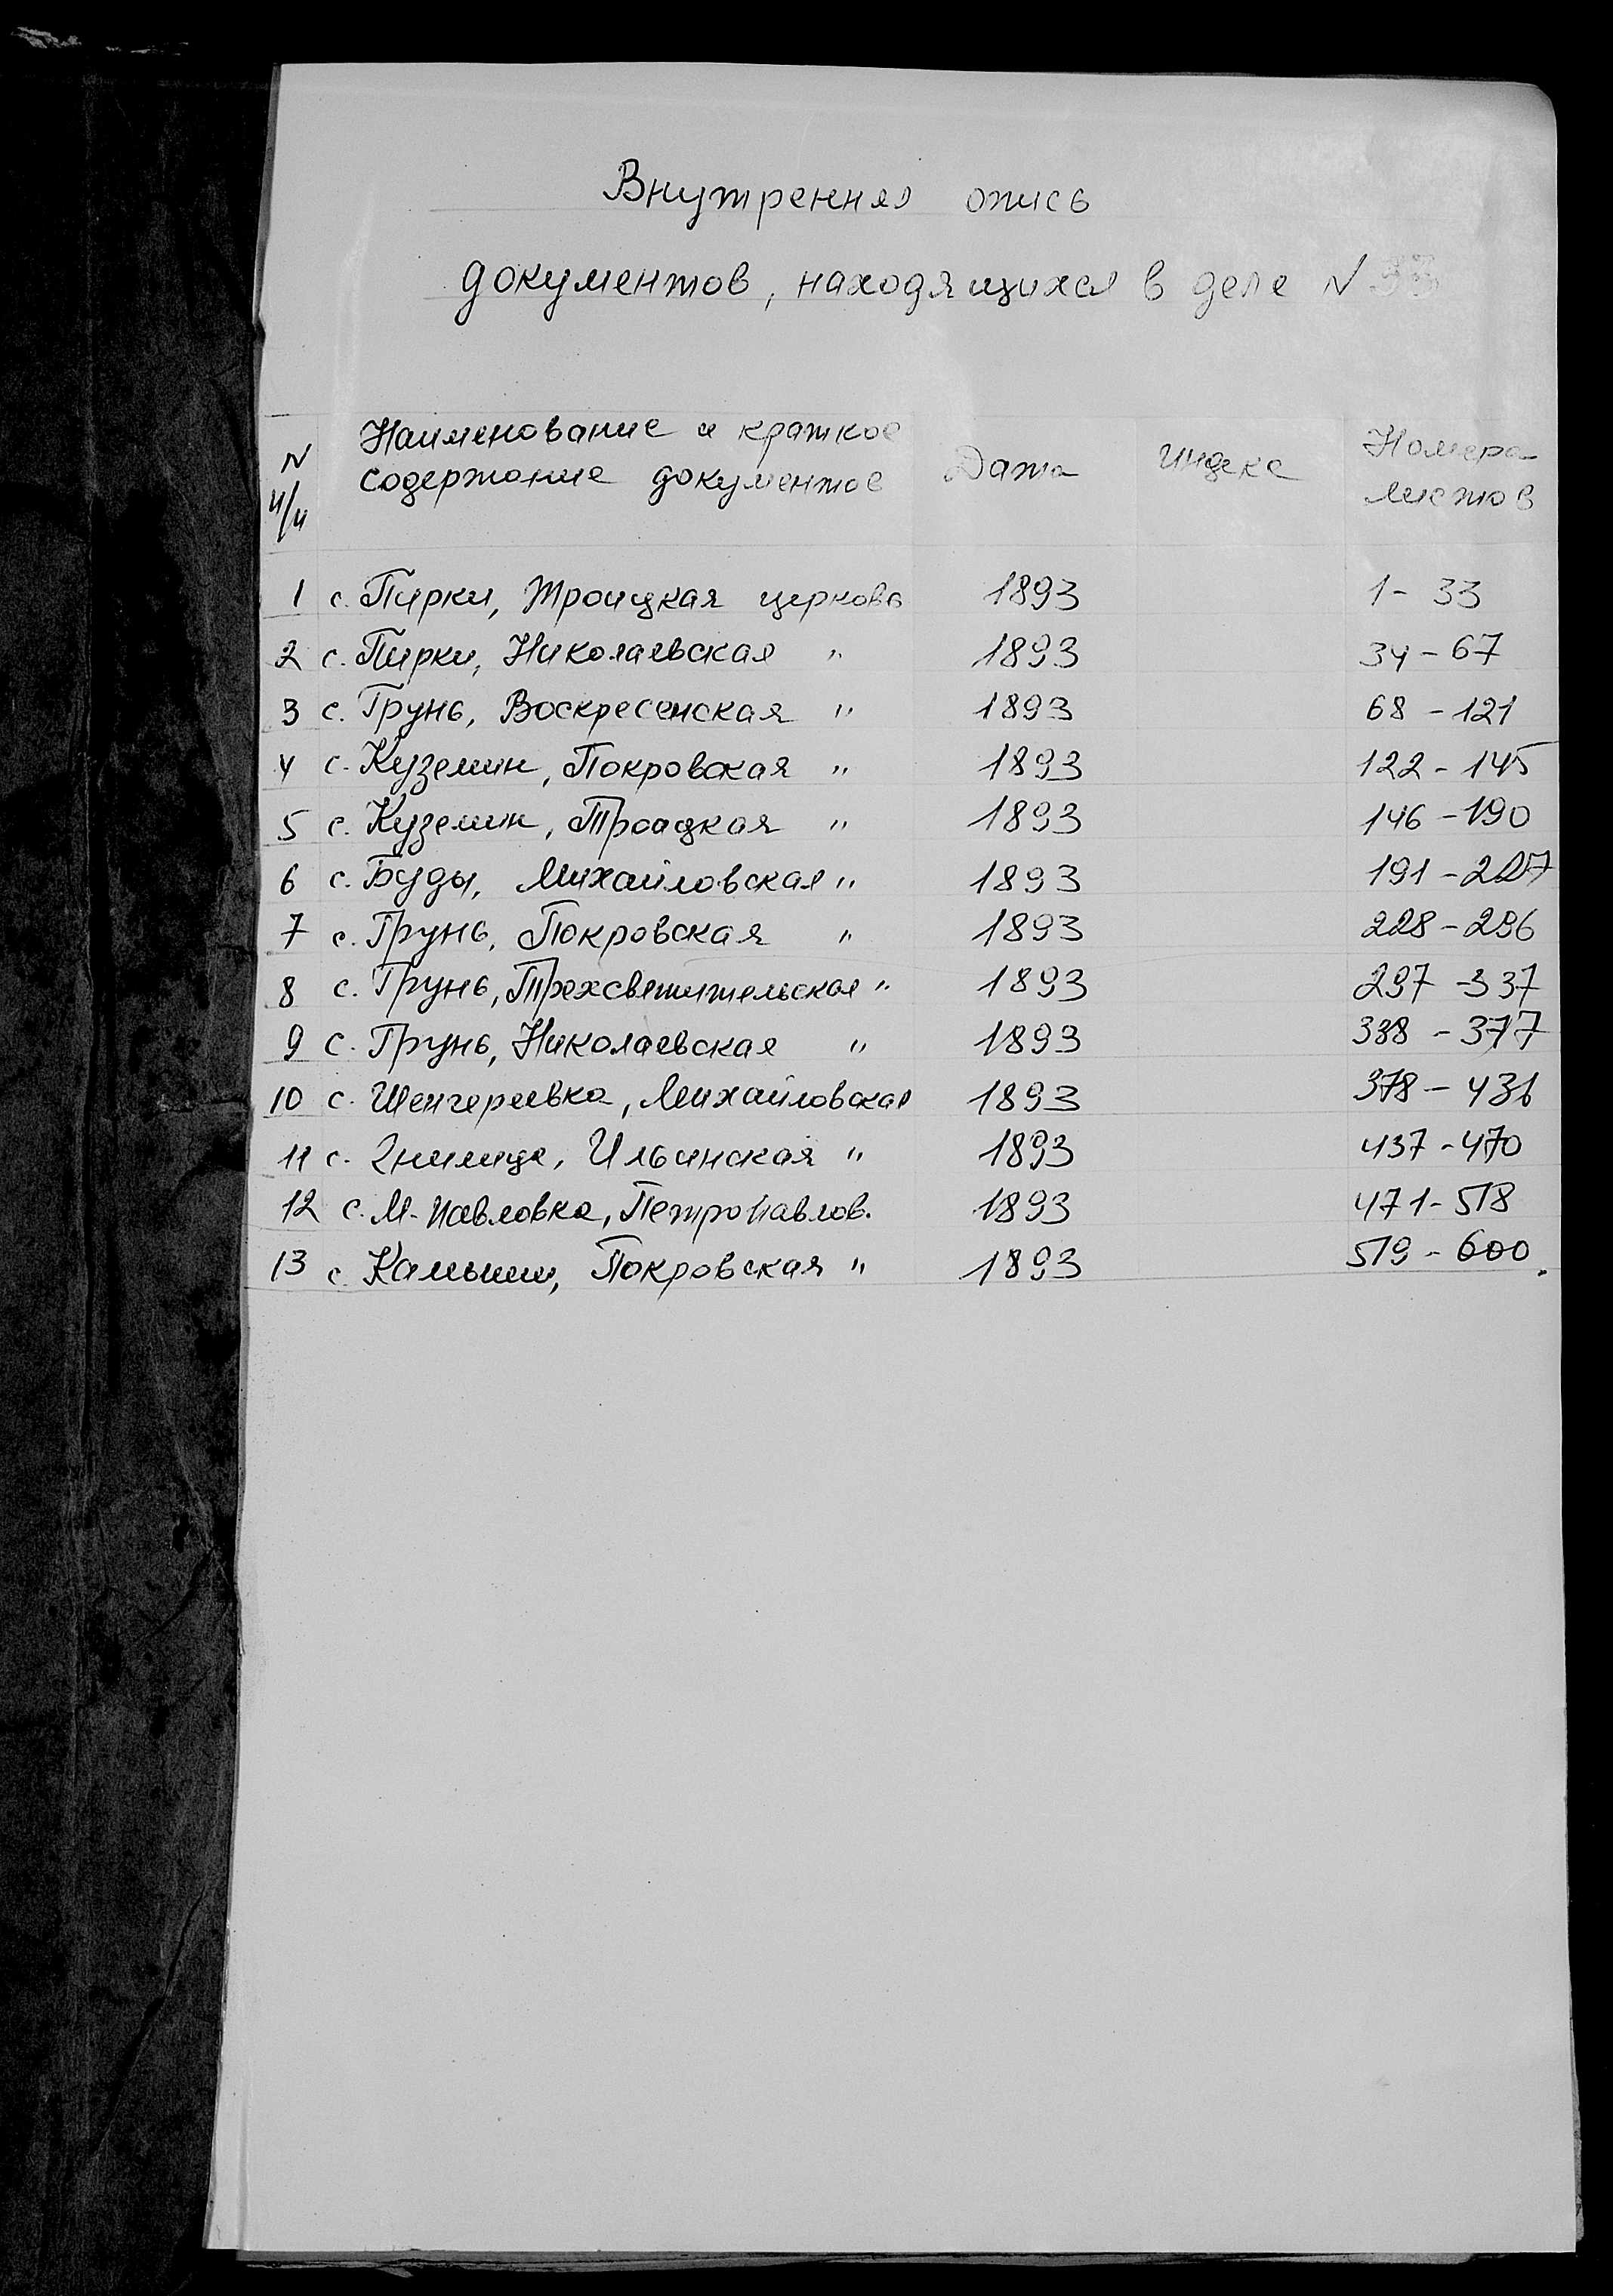 Внутренняя опись
документов, находящихся в деле N
N п/п Наименование и краткое содержание документов Дата Индекс Номера листов
1 с. Пирки, Троицкая церковь 1893 1 - 33
2 с. Пирки, Николаевская " 1893 34 - 67
3 с. Грунь, Воскресенская " 1893 68 - 121
4 с. Куземин, Покровская " 1893 122 - 145
5 с. Куземин, Троицкая " 1893 146 - 190
6 с. Буды, Михайловская " 1893 191 - 227
7 с. Грунь, Покровская " 1893 228 - 296
8 с. Грунь, Трехсвятительская " 1893 297 - 337
9 с. Грунь, Николаевская " 1893 338 - 377
10 с. Шенгереевка, Михайловская 1893 378 - 436
11 с. Гнилица, Ильинская " 1893 437 - 470
12 с. М-Павловка, Петропавлов. 1893 471 - 518
13 с. Камыши, Покровская " 1893 519 - 600.